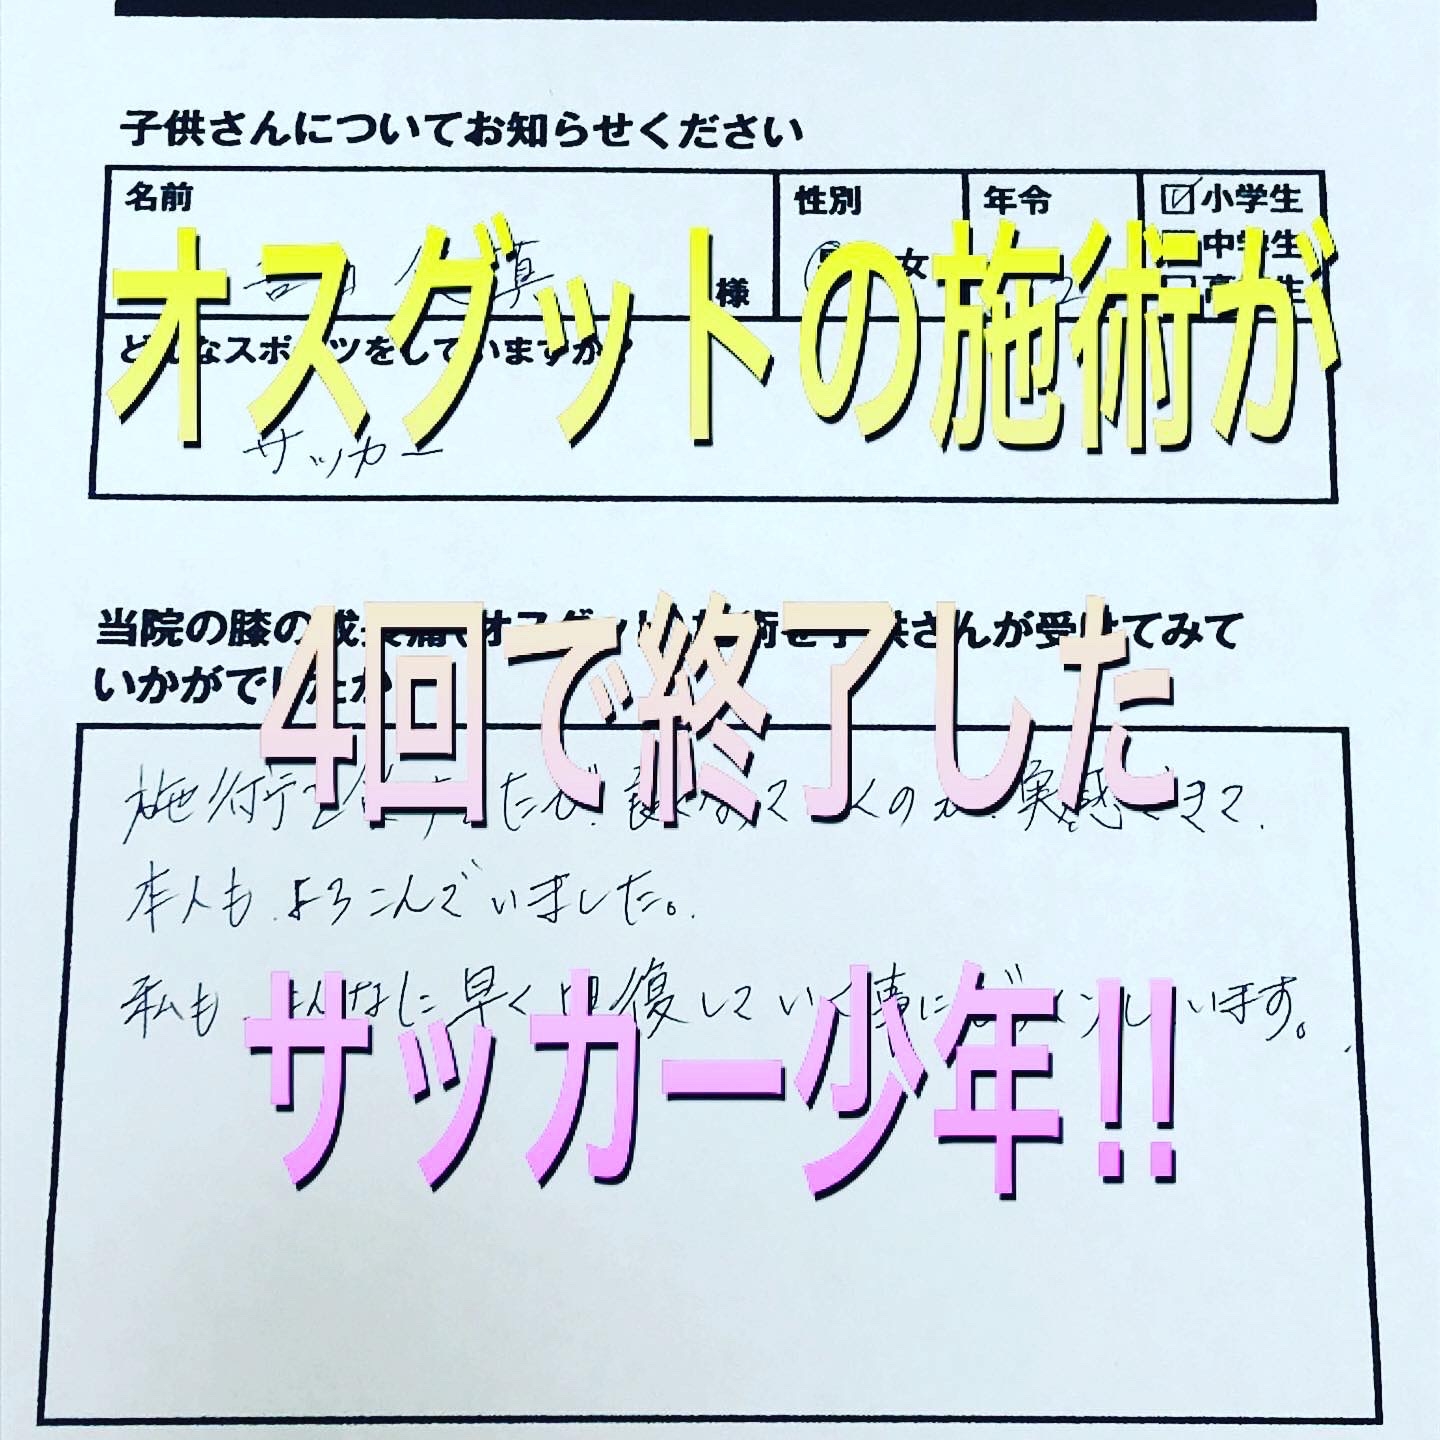 子供さんについてお知らせください
名前
様
性別
女
年令
小学生
中学生
オスグットの施術が
どんなスポーツをしていますか?
サッカー
当院の膝の成長痛、オスグット施術を子供さんが受けてみて
いかがでしたか
4回で終了した
施術を たびに良くなっていくのが、実感できて、
本人も、よろこんでいました。
私も、こんなに早く回復していく事にビックリしています。
サッカー少年!!